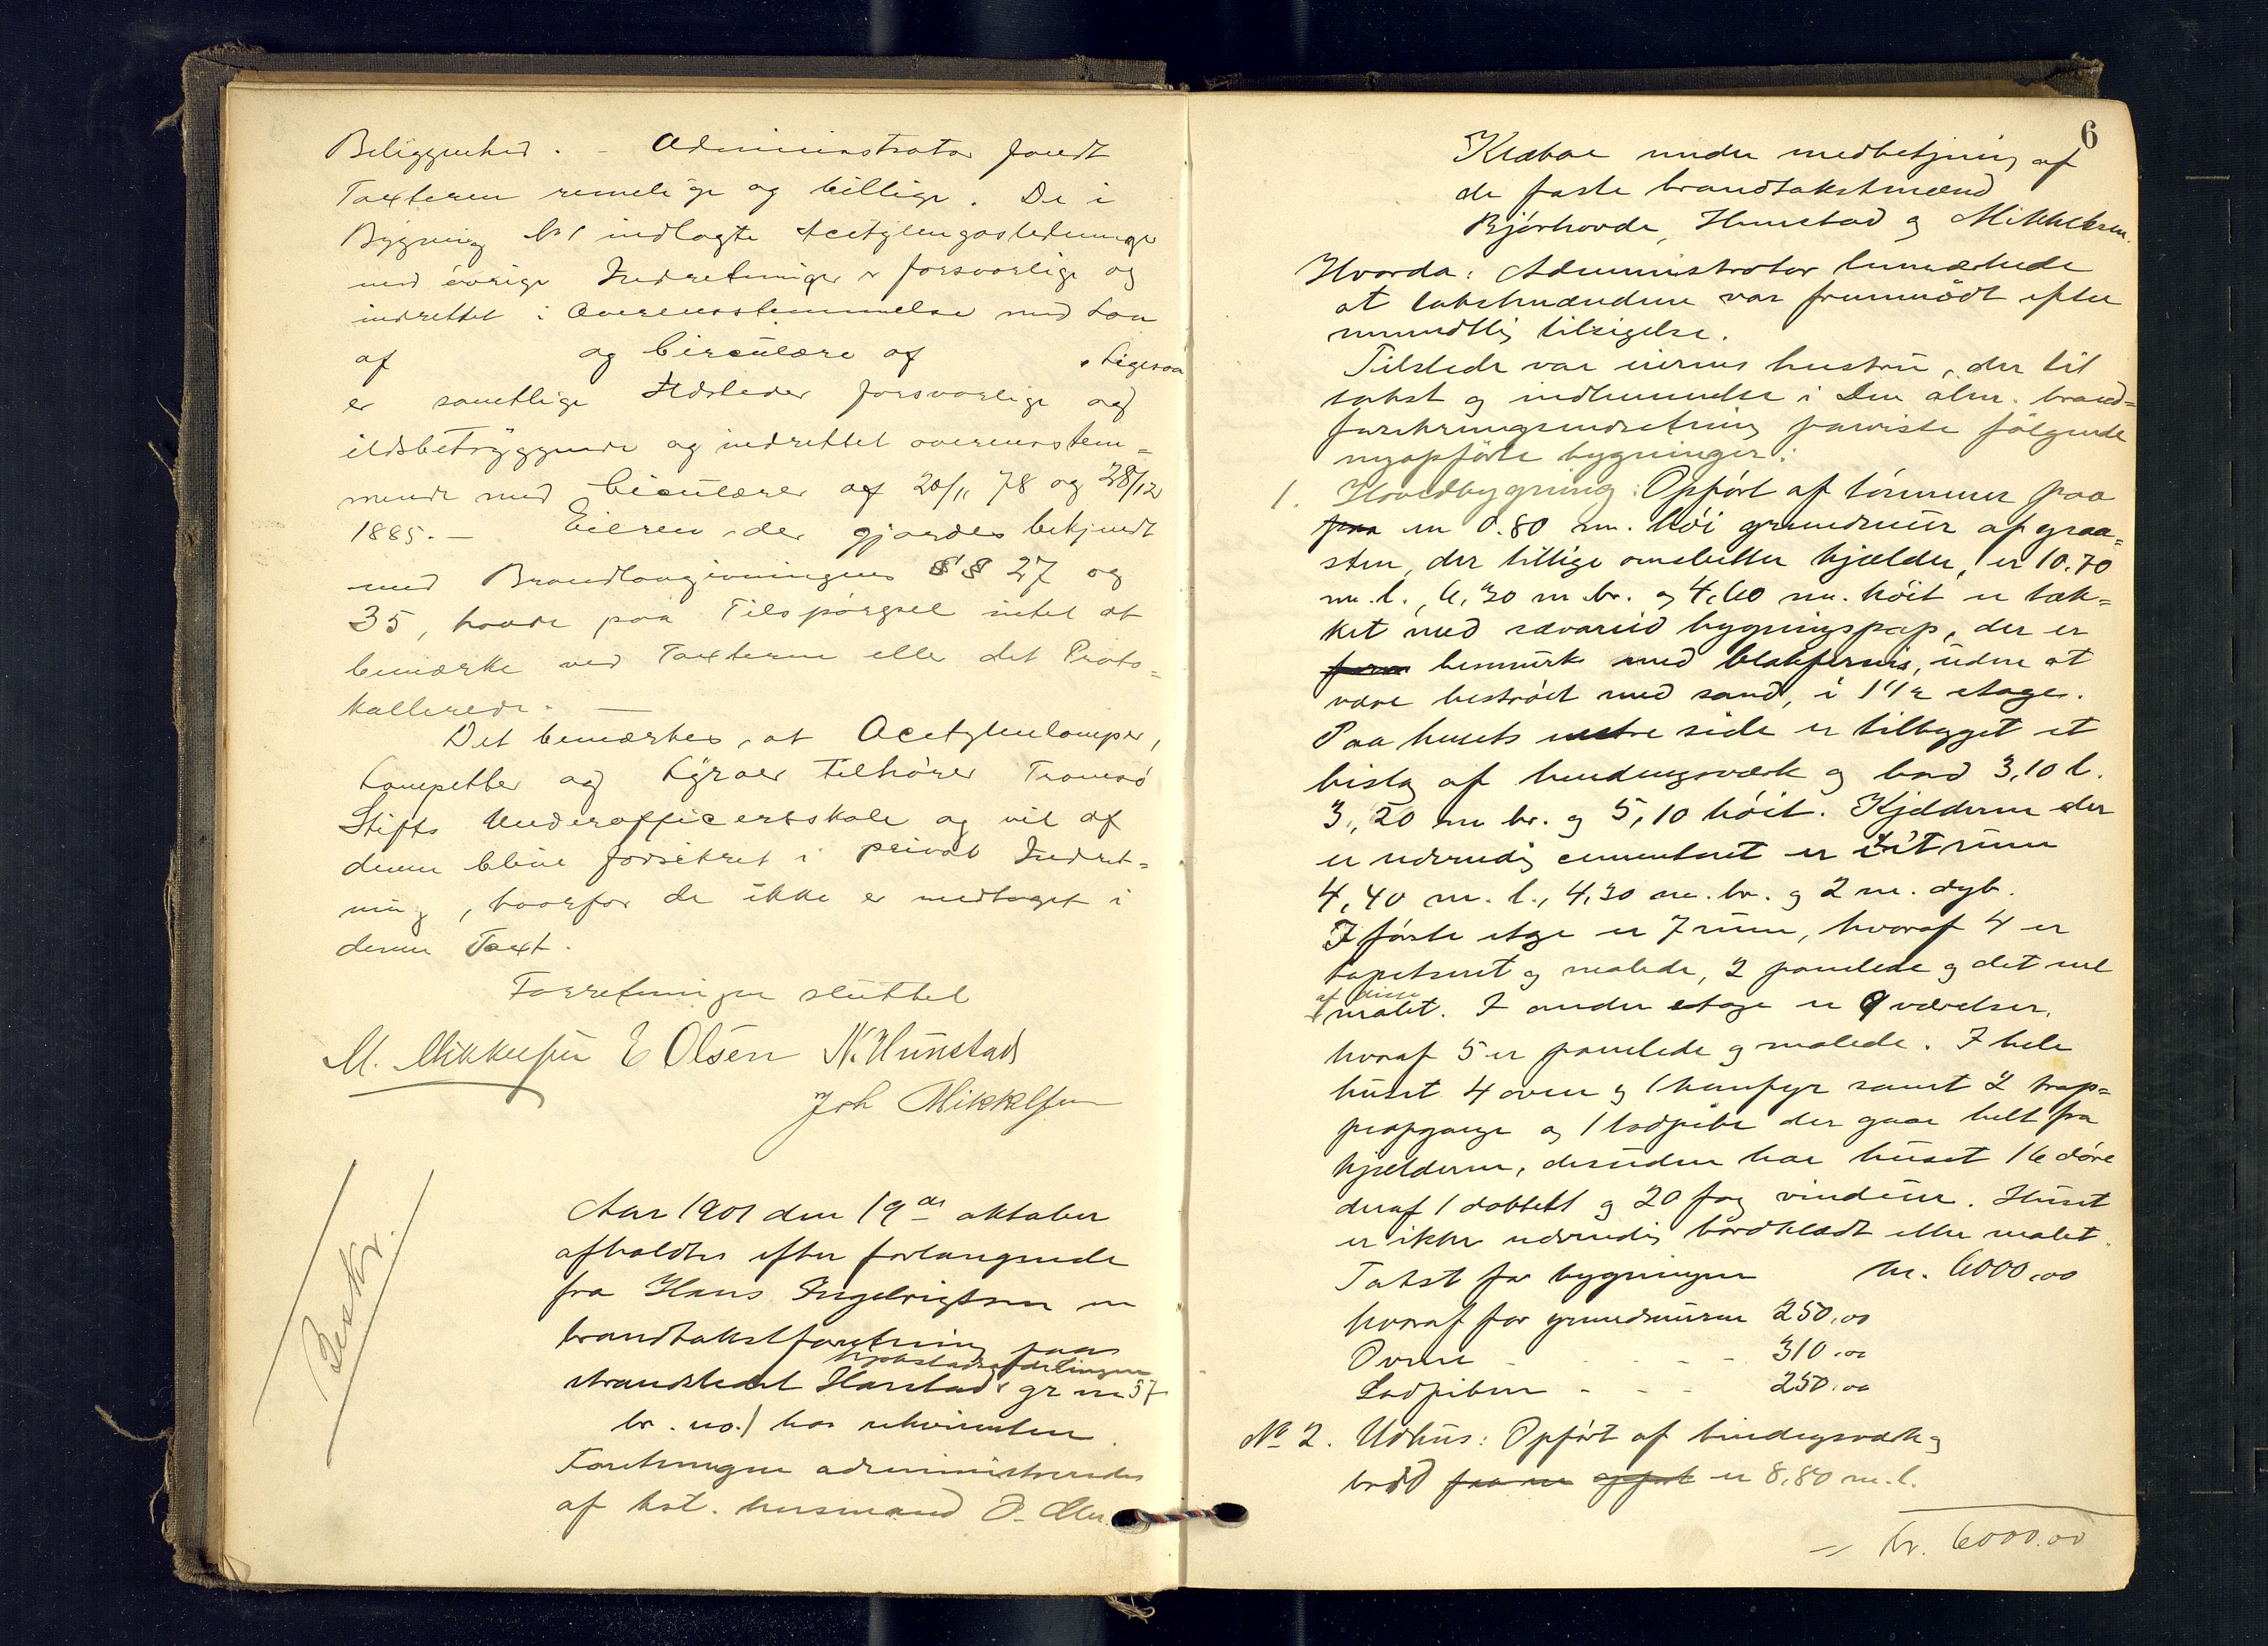 Beliggenhed. - Administrator fandt
Taxterne rimelige og billige. De i
Bygning No 1 indlagte Acetylengasledninger
med övrige Indretninger er forsvarlige og
indrettet i Overensstemmelse med Lov
af og Circulære af . Ligesaa
er samtlige Ildsteder forsvarlige og
ildsbetryggende og indrettet overensstem=
mende med Circulærer af 20/11 78 og 28/12
1885. — Eieren, der gjordes bekjendt
med Brandlovgivningens §§ 27 og
35, havde paa Tilspörgsel intet at
bemærke ved Taxterne eller det Proto=
kollerede. —
Det bemærkes, at Acetylenlamper,
Lampetter og Lyraer tilhörer Tromsö
Stifts Underofficersskole og vil af
denne blive forsikret i privat Indret=
ning, hvorfor de ikke er medtaget i
denne Taxt.
Forretningen sluttet
M. Mikkelsen E Olsen N. Hunstad
Joh Mikkelsen
Beskr.
Aar 1901 den 19de oktober
afholdtes efter forlangende
fra Hans Ingebrigtsen en
brandtakstforretning paa
kjøbstadsafdelingen
strandstedet Harstad gr no 57
br. no. 1 hos rekvirenten.
Forretningen administreredes
af kst. lensmand O.
6
Kræboe under medbetjening af
de faste brandtakstmænd
Bjórhovde, Hunstad og Mikkelsen.
Hvorda: Administrator bemærkede
at takstmændene var fremmödt efter
mundtlig tilsigelse.
Tilstede var eierens hustru, der til
takst og indlemmelse i Den alm. brand=
forsikringsindretning paaviste fölgende
nyopförte bygninger:
1. Hovedbygning: Opfört af tömmer paa
paa en 0.80 m. höi grundmur af graa=
sten, der tillige omslutter kjælder, er 10.70
m. l., 6,30 m br. og 4,60 m. höit er tæk=
ket med bygningspap, der er
med blakfernis, uden at
være beströet med sand, i 1 1/2 etage.
Paa husets vestre side er tilbygget et
bislag af bindingsværk og bord 3,10 l.
3,20 m br. og 5,10 höit. Kjælderen der
er udvendig cementeret er i et rum
4,40 m. l., 4,30 m. br. og 2 m. dyb.
I förste etage er 7 rum, hvoraf 4 er
tapetseret og malede, 2 panelede og det ene
af disse
malet. I anden etage er 9 værelser,
hvoraf 5 er panelede og malede. I hele
huset 4 ovne og 1 komfyr samt 2 trap=
peopgange og 1 lodpibe der gaar helt fra
kjælderen, desuden har huset 16 döre
deraf 1 dobbelt og 20 fag vinduer. Huset
er ikke udvendig bordklædt eller malet.
Takst for bygningen kr. 6000,00
hvoraf for grundmuren 250,00
Ovne - - - - 310,00
Lodpiben - - - 250,00
No 2. Udhus: Opfört af bindingsværk og
bord er 8,80 m. l.
= Kr. 6000.00